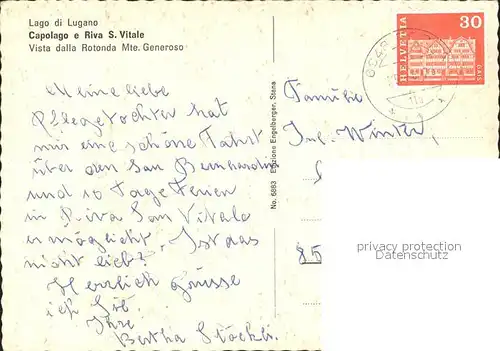 Lago di Lugano
Capolago e Riva S. Vitale
Vista dalla Rotonda Mte. Generoso
Meine liebe
Pflegetochter hat
mir eine schöne Fahrt
über den San Bernhardin
und 10 Tage Ferien
in Riva San Vitale
ermöglicht. Ist das
nicht lieb?
Herzlich Grüsse
ich
Ihre
Bertha Stöckli.
No. 6883 Edizione Engelberger, Stans
HELVETIA
30
GAIS
Familie
Jul. Winter,
85
privacy protection
www.ansichtskarten-center.de